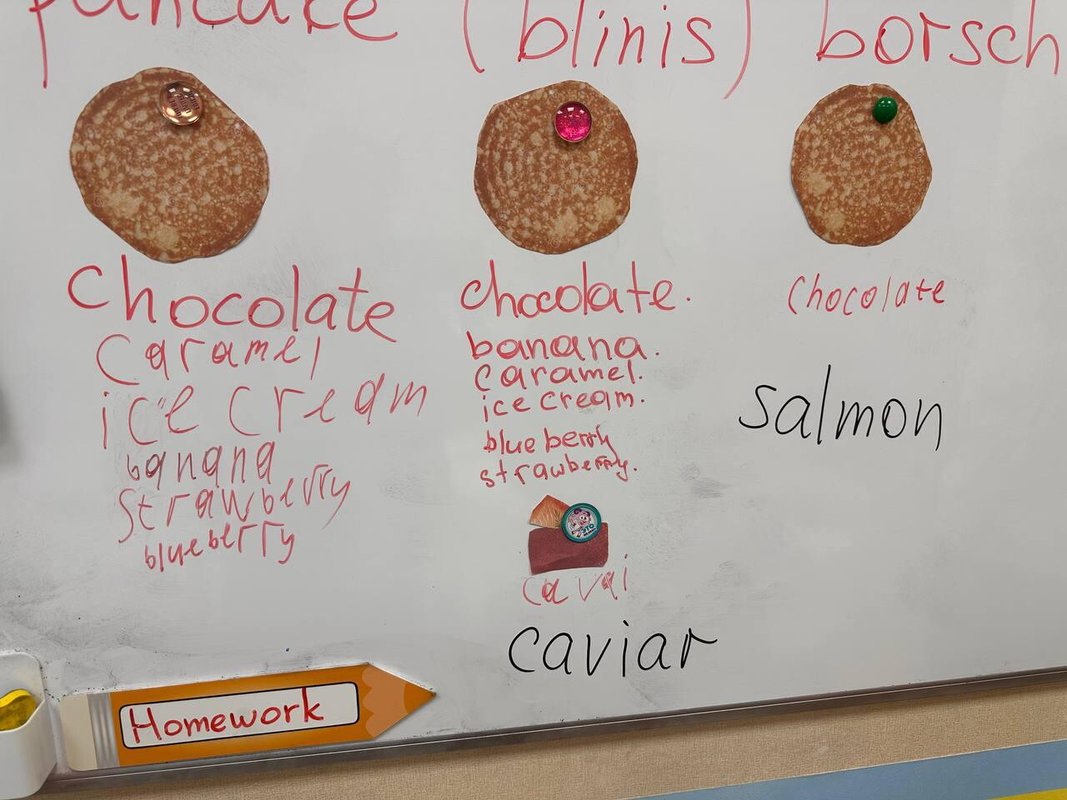 pancake (blinis) borsch
chocolate
caramel
ice cream
banana
strawberry
blueberry
chocolate.
banana.
caramel.
ice cream.
blueberry
strawberry.
cavai
caviar
chocolate
salmon
Homework